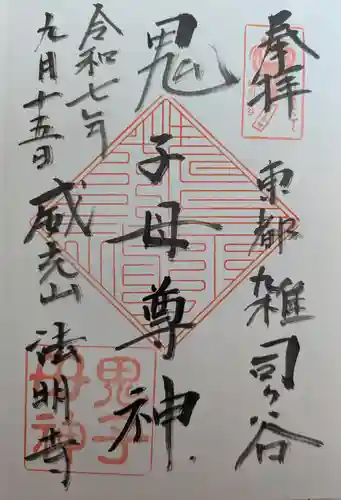 奉拝
東都雑司ケ谷
鬼子母尊神
令和七年
九月十五日
威光山法明寺
鬼子
母神